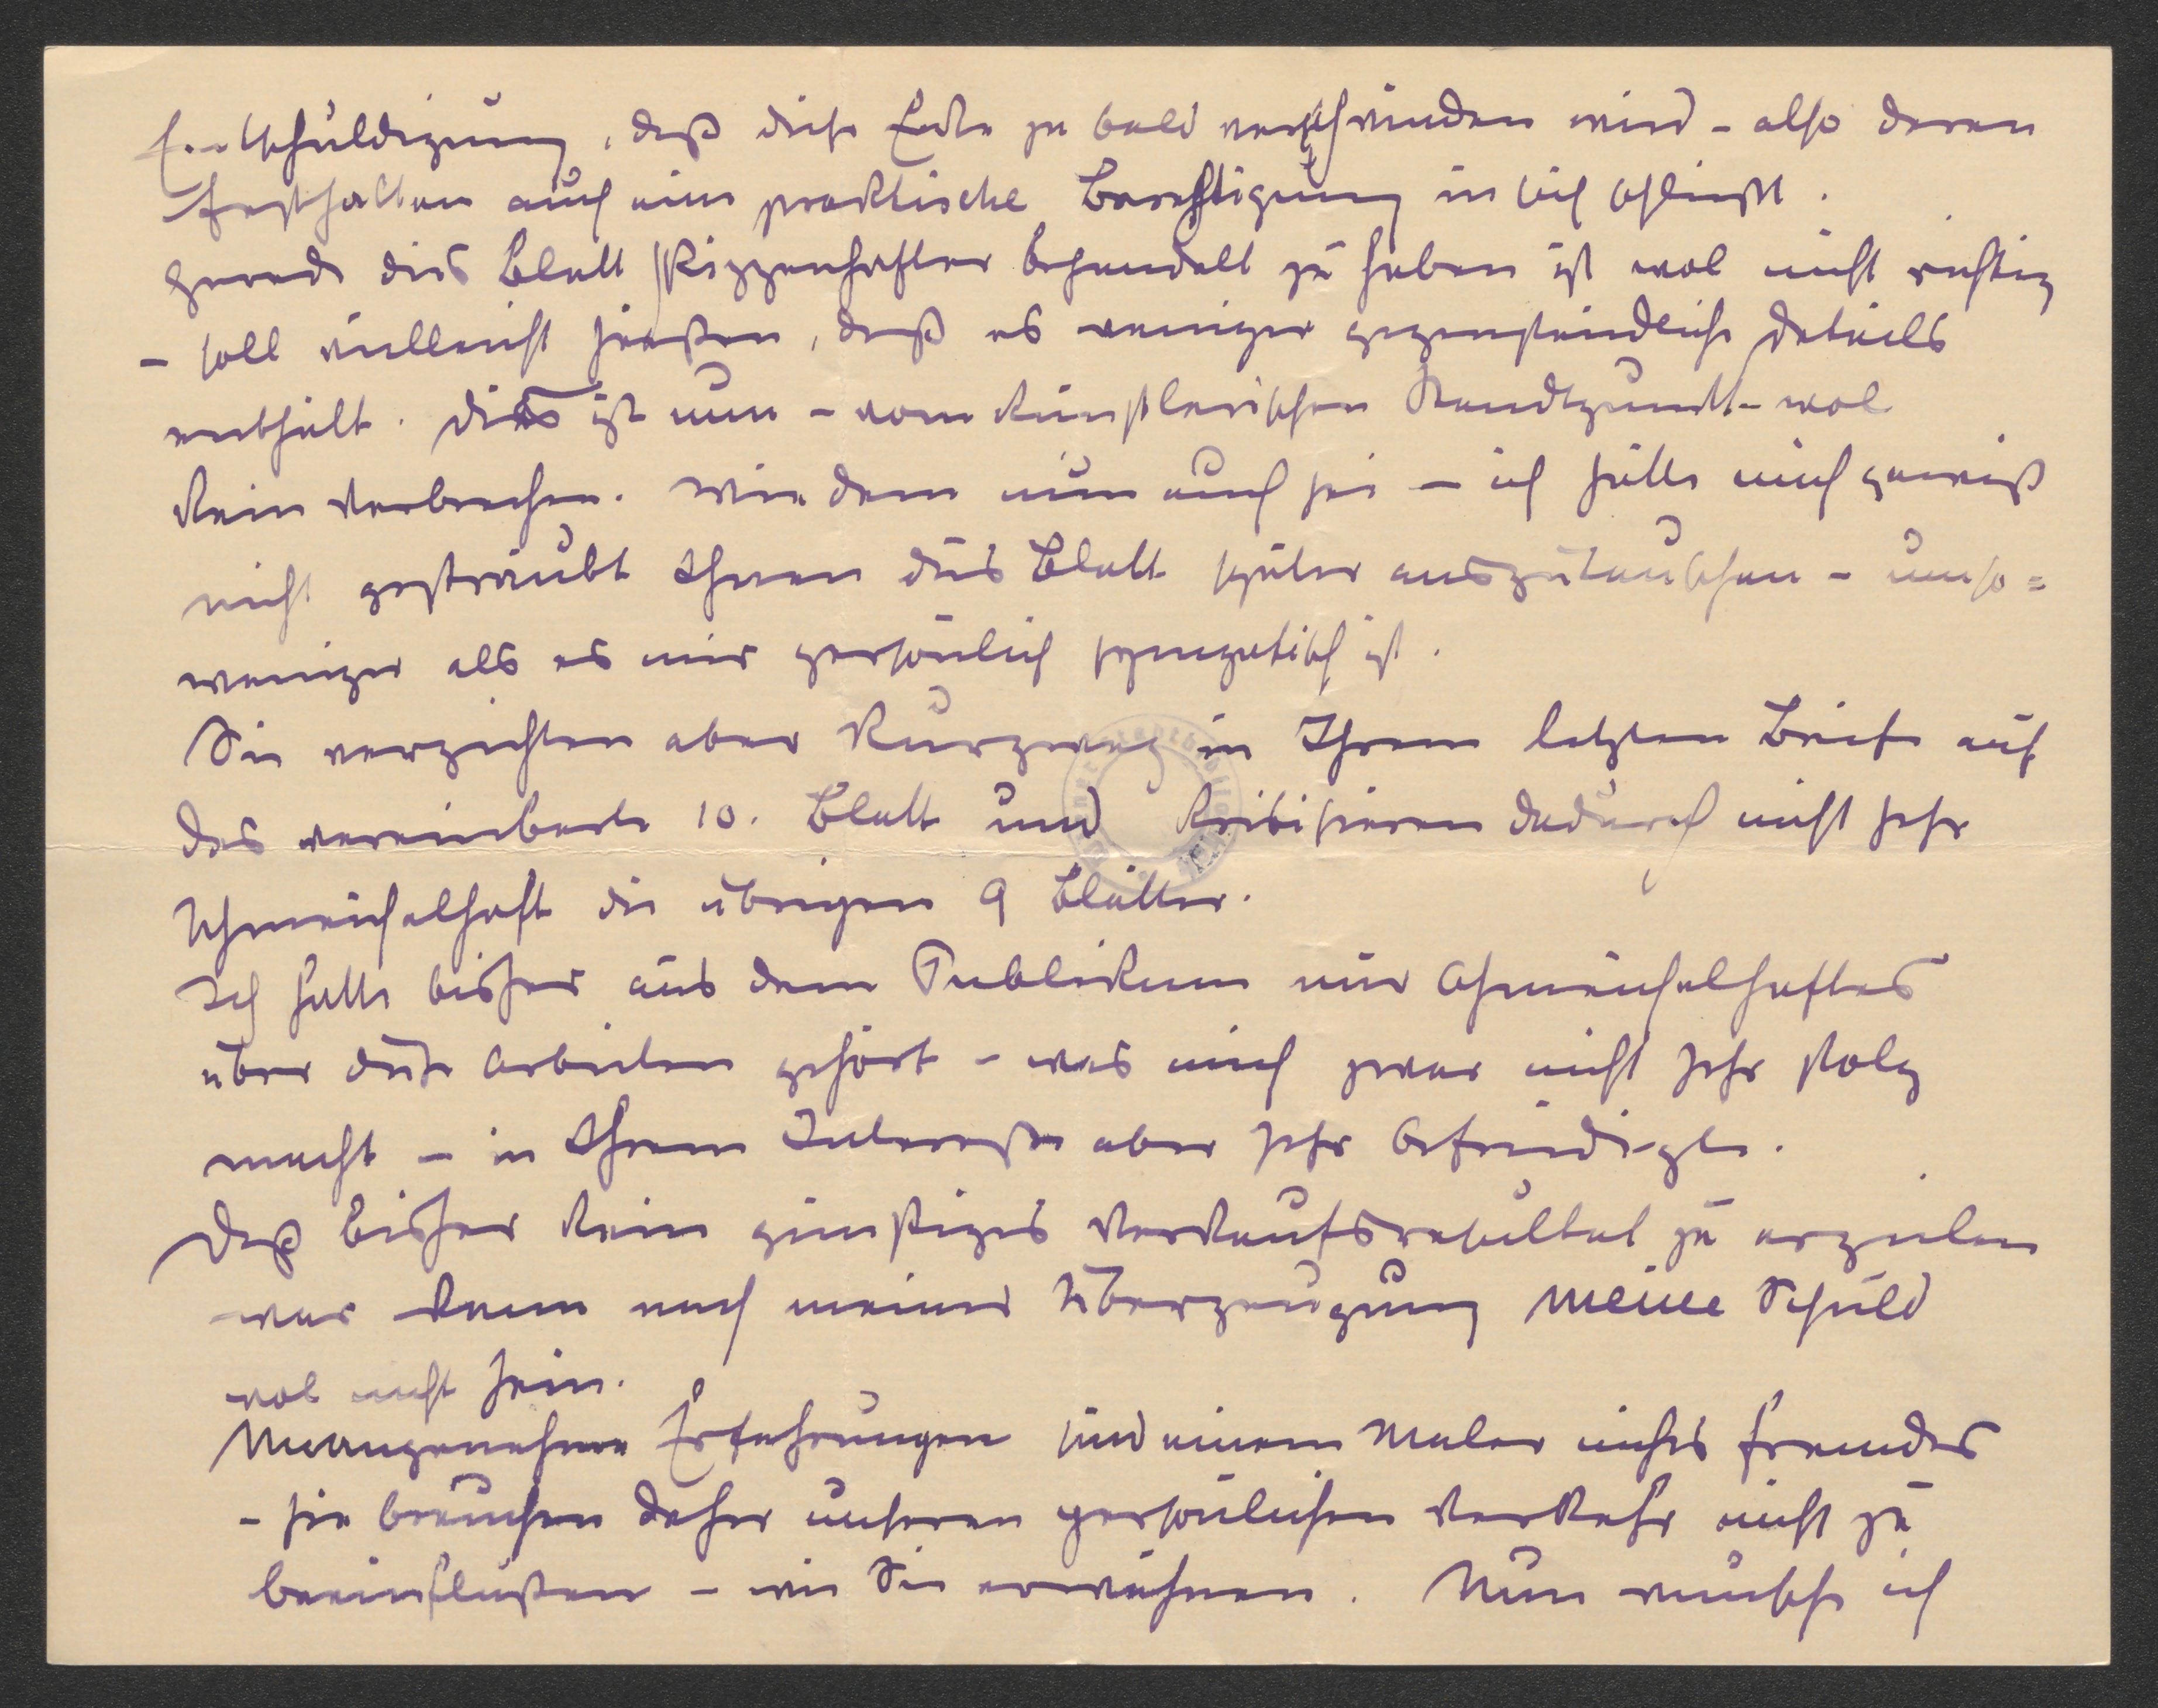 Entschuldigung, daß diese Ecke zu bald verschwinden wird - also deren
Festhalten auch eine praktische Berechtigung in sich schließt.
Gerade dies Blatt skizzenhafter behandelt zu haben ist wol nicht richtig
- soll vielleicht heißen, daß es weniger gegenständliche Details
enthält. Dies ist nun - vom künstlerischen Standpunkt - wol
kein Verbrechen. Wie dem nun auch sei - ich hätte mich gewiß
nicht gesträubt Ihnen dies Blatt später auszutauschen - umso=
weniger als es mir persönlich sympatisch ist.
Sie verzichten aber kurzweg in Ihrem letzten Briefe auf
das vereinbarte 10. Blatt und kritisieren dadurch nicht sehr
schmeichelhaft die übrigen 9 Blätter.
Ich hatte bisher aus dem Publikum nur schmeichelhaftes
über diese Arbeiten gehört - was mich zwar nicht sehr stolz
macht - in Ihrem Interesse aber sehr befriedigte.
Daß bisher kein günstiges Verkaufsresultat zu erzielen
war kann nach meiner Überzeugung meine Schuld
wol nicht sein.
Unangenehme Erfahrungen sind einem Maler nichts fremdes
- sie brauchen daher unseren persönlichen Verkehr nicht zu
beeinflußen - wie Sie erwähnen. Nun wünsche ich